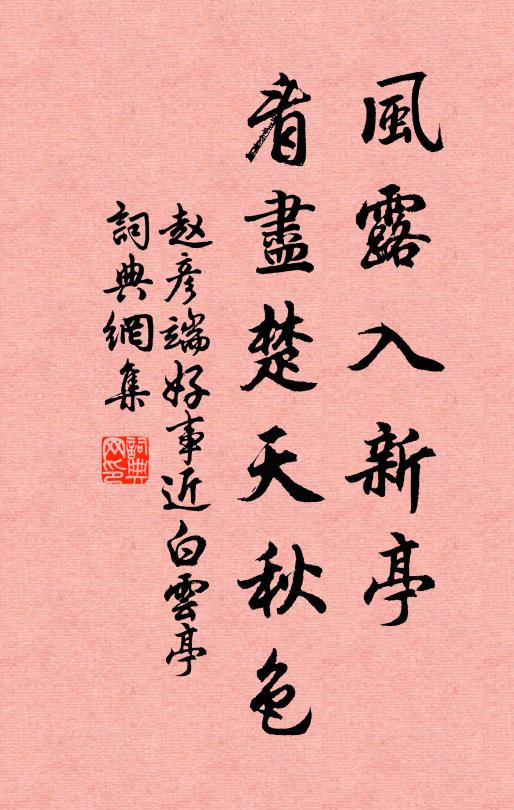 風露入新亭
看盡楚天秋色
赵彦端好事近白雲亭
詞典網集
詞典
网印